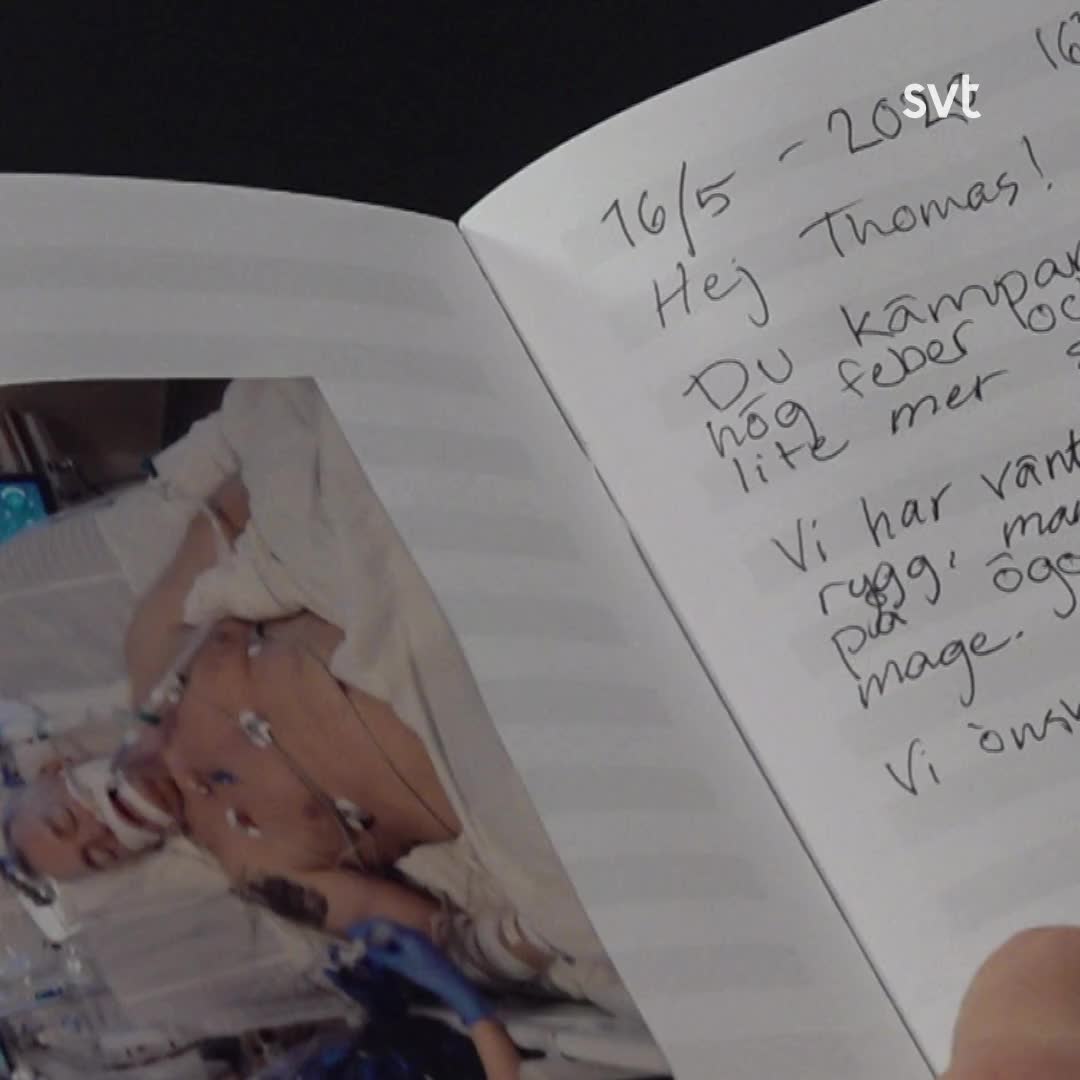 svt
16/5 - 2020 16
Hej Thomas!
Du kämpar
hög feber oc
lite mer
Vi har vänt
rygg, mar
på ögo
mage.
Vi önsk